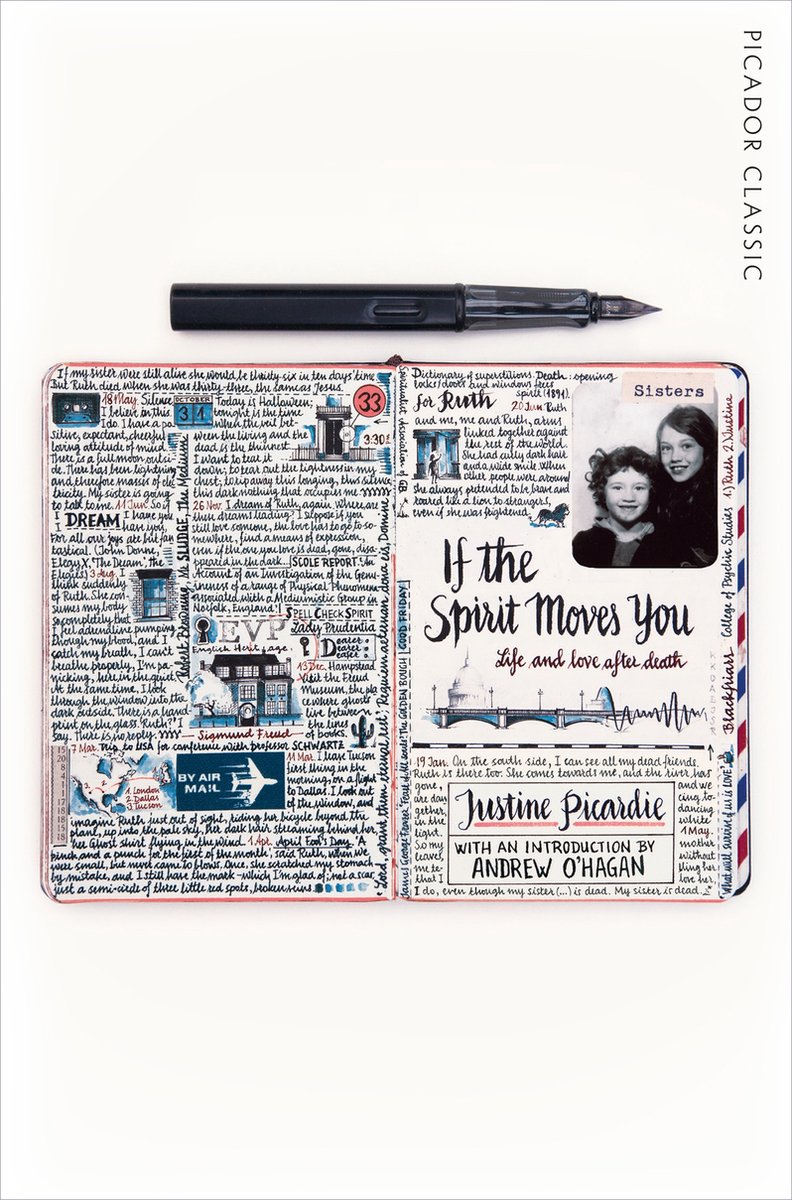 PICADOR CLASSIC
If my sister were still alive she would be thirty-six in ten days' time.
But Ruth died when she was thirty-three, the same as Jesus.
18 May. Silence.
I believe in this.
I do. I have a po
sitive, expectant, cheerful
loving attitude of mind.
There is a full moon outsi-
de. There has been lightning
and therefore masses of elec
tricity. My sister is going
to talk to me. 11 Jun. So if
I DREAM I have you
I han you,
For all our joys are but fan
tastical. (John Donne,
Elegy X, "The Dream", the
Elegies) 3 Aug. I
think suddenly
of Ruth. She con-
sumes my body
so completely that
I feel adrenaline pumping
through my blood, and I
catch my breath, I can't
breathe properly, I'm pa-
nicking, here in the quiet.
At the same time, I look
through the window into the
dark outside. There is a hand
print on the glass. 'Ruth?' I
say. There is no reply.
Robert Browning, Mr SLUDGE, 'The Medium'
OCTOBER
31
Today is Halloween;
tonight is the time
when the veil bet-
ween the living and the
dead is the thinnest.
I want to tear it
down, to tear out the tightness in my
chest, to rip away this longing, this silence,
this dark nothing that occupies me
33
3.30
26 Nov. I dream of Ruth, again. Where are
these dreams leading? I suppose if you
still love someone, the love has to go to so-
mewhere, find a means of expression,
even if the one you love is dead, gone, disa-
ppeared in the dark.
SCOLE REPORT: An
Account of an Investigation of the Genu-
ineness of a range of Physical Phenomena
associated with a Mediumistic Group in
Norfolk, England.
SPELL CHECK SPIRIT
EVP
Lady Prudentia
English Heritage.
Dearer:
Dearer:
Deafer:
13 Dec. Hampstead
Visit the Freud
Museum, the pla
ce where ghosts
live between
the lines
of books.
Sigmund Freud
7 Mar. trip to USA for conference with professor SCHWARTZ
15
20
8
4
11
17
18
18
15
18
1. London
2. Dallas
3. Tucson
BY AIR
MAIL
11 Mar. I leave Tucson
first thing in the
morning, on a flight
to Dallas. I look out
of the window, and
imagine Ruth just out of sight, riding her bicycle beyond the
plane, up into the pale sky, her dark hair streaming behind her,
her Ghost shirt flying in the wind. 1 Apr. April Fool's Day. 'A
pinch and a punch for the first of the month', said Ruth, when we
were small, but more came to blows. Once, she scratched my stomach
by mistake, and I still have the mark - which I'm glad of; not a scar,
just a semi-circle of three little red spots, broken veins.
Lord, grant them eternal rest; Requiem aeternam dona eis, Domine
Spiritualist Association of GB
Dictionary of superstitions. Death: opening
locks/doors and windows frees
spirit (1891).
for Ruth
20 Jun. Ruth
and me, me and Ruth, arms
linked together against
the rest of the world.
She had curly dark hair
and a wide smile. When
other people were around
she always pretended to be brave and
roared like a lion to strangers,
even if she was frightened.
Sisters
If the
Spirit Moves You
Life and love after death
GOOD FRIDAY
James George Frazer THE GOLDEN BOUGH
College of Psychic Studies 1) Ruth 2)
Blackfriars
"What will survive of us is LOVE"
19 Jan. On the south side, I can see all my dead friends.
Ruth is there too. She comes towards me, and the river has
gone,
are day
gether,
in the
light.
So my
leaves,
me te-
that I
Justine Picardie
WITH AN INTRODUCTION BY
ANDREW O'HAGAN
and we
cing, to-
dancing
white
1 May.
mother
without
lling her
love her.
I do, even though my sister (...) is dead. My sister is dead.